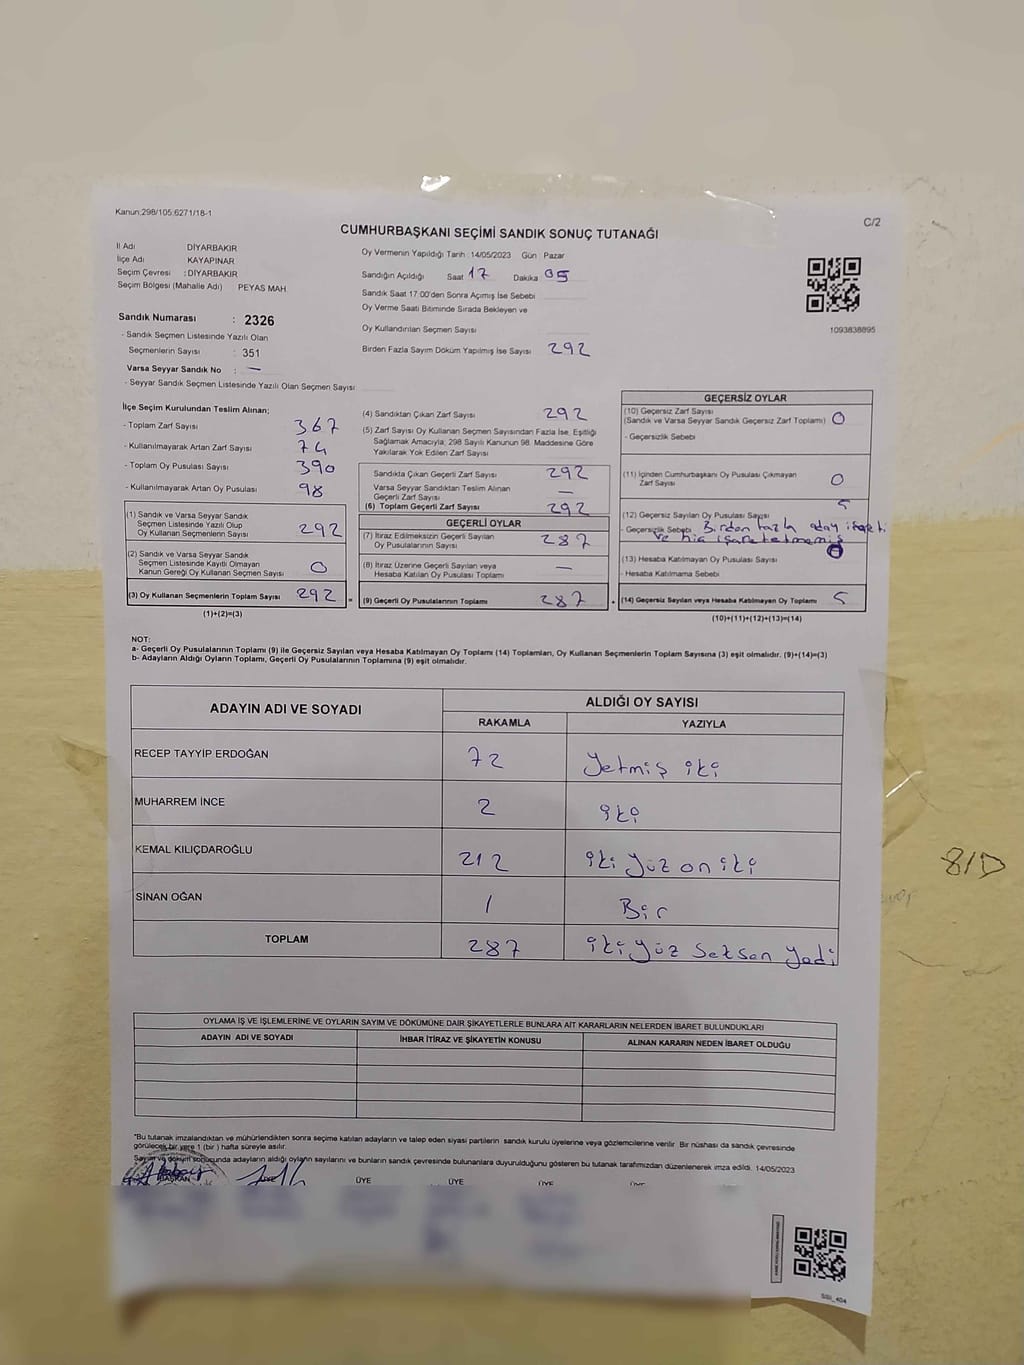 Kanun:298/105;6271/18-1
C/2
CUMHURBAŞKANI SEÇİMİ SANDIK SONUÇ TUTANAĞI
İl Adı DİYARBAKIR
İlçe Adı KAYAPINAR
Seçim Çevresi : DİYARBAKIR
Seçim Bölgesi (Mahalle Adı) PEYAS MAH.
Sandık Numarası : 2326
- Sandık Seçmen Listesinde Yazılı Olan
Seçmenlerin Sayısı : 351
Varsa Seyyar Sandık No : —
- Seyyar Sandık Seçmen Listesinde Yazılı Olan Seçmen Sayısı
Oy Vermenin Yapıldığı Tarih : 14/05/2023 Gün : Pazar
Sandığın Açıldığı Saat 17 Dakika 05
Sandık Saat 17:00'den Sonra Açımış İse Sebebi
Oy Verme Saati Bitiminde Sırada Bekleyen ve
Oy Kullandırılan Seçmen Sayısı
Birden Fazla Sayım Döküm Yapılmış İse Sayısı 292
1093838895
İlçe Seçim Kurulundan Teslim Alınan;
- Toplam Zarf Sayısı 367
- Kullanılmayarak Artan Zarf Sayısı 74
- Toplam Oy Pusulası Sayısı 390
- Kullanılmayarak Artan Oy Pusulası 98
(1) Sandık ve Varsa Seyyar Sandık
Seçmen Listesinde Yazılı Olup
Oy Kullanan Seçmenlerin Sayısı 292
(2) Sandık ve Varsa Seyyar Sandık
Seçmen Listesinde Kayıtlı Olmayan
Kanun Gereği Oy Kullanan Seçmen Sayısı 0
(3) Oy Kullanan Seçmenlerin Toplam Sayısı 292 =
(1)+(2)=(3)
(4) Sandıktan Çıkan Zarf Sayısı 292
(5) Zarf Sayısı Oy Kullanan Seçmen Sayısından Fazla İse, Eşitliği
Sağlamak Amacıyla; 298 Sayılı Kanunun 98. Maddesine Göre
Yakılarak Yok Edilen Zarf Sayısı
Sandıkta Çıkan Geçerli Zarf Sayısı 292
Varsa Seyyar Sandıktan Teslim Alınan
Geçerli Zarf Sayısı —
(6) Toplam Geçerli Zarf Sayısı 292
GEÇERLİ OYLAR
(7) İtiraz Edilmeksizin Geçerli Sayılan
Oy Pusulalarının Sayısı 287
(8) İtiraz Üzerine Geçerli Sayılan veya
Hesaba Katılan Oy Pusulası Toplamı —
(9) Geçerli Oy Pusulalarının Toplamı 287 +
GEÇERSİZ OYLAR
(10) Geçersiz Zarf Sayısı
(Sandık ve Varsa Seyyar Sandık Geçersiz Zarf Toplamı) 0
- Geçersizlik Sebebi
(11) İçinden Cumhurbaşkanı Oy Pusulası Çıkmayan
Zarf Sayısı 0
(12) Geçersiz Sayılan Oy Pusulası Sayısı 5
- Geçersizlik Sebebi Birden fazla aday işareti
ve hiç işaretetmemiş
(13) Hesaba Katılmayan Oy Pusulası Sayısı 0
- Hesaba Katılmama Sebebi
(14) Geçersiz Sayılan veya Hesaba Katılmayan Oy Toplamı 5
(10)+(11)+(12)+(13)=(14)
NOT:
a- Geçerli Oy Pusulalarının Toplamı (9) ile Geçersiz Sayılan veya Hesaba Katılmayan Oy Toplamı (14) Toplamları, Oy Kullanan Seçmenlerin Toplam Sayısına (3) eşit olmalıdır. (9)+(14)=(3)
b- Adayların Aldığı Oyların Toplamı, Geçerli Oy Pusulalarının Toplamına (9) eşit olmalıdır.
ADAYIN ADI VE SOYADI ALDIĞI OY SAYISI
RAKAMLA YAZIYLA
RECEP TAYYİP ERDOĞAN 72 Yetmiş iki
MUHARREM İNCE 2 iki
KEMAL KILIÇDAROĞLU 212 iki yüz on iki
SİNAN OĞAN 1 Bir
TOPLAM 287 iki yüz Seksen Yedi
8/D
OYLAMA İŞ VE İŞLEMLERİNE VE OYLARIN SAYIM VE DÖKÜMÜNE DAİR ŞİKAYETLERLE BUNLARA AİT KARARLARIN NELERDEN İBARET BULUNDUKLARI
ADAYIN ADI VE SOYADI İHBAR İTİRAZ VE ŞİKAYETİN KONUSU ALINAN KARARIN NEDEN İBARET OLDUĞU
*Bu tutanak imzalandıktan ve mühürlendikten sonra seçime katılan adayların ve talep eden siyasi partilerin sandık kurulu üyelerine veya gözlemcilerine verilir. Bir nüshası da sandık çevresinde
görülecek bir yere 1 (bir) hafta süreyle asılır.
Sayım ve döküm sonucunda adayların aldığı oyların sayılarını ve bunların sandık çevresinde bulunanlara duyurulduğunu gösteren bu tutanak tarafımızdan düzenlenerek imza edildi. 14/05/2023
BAŞKAN ÜYE ÜYE ÜYE ÜYE